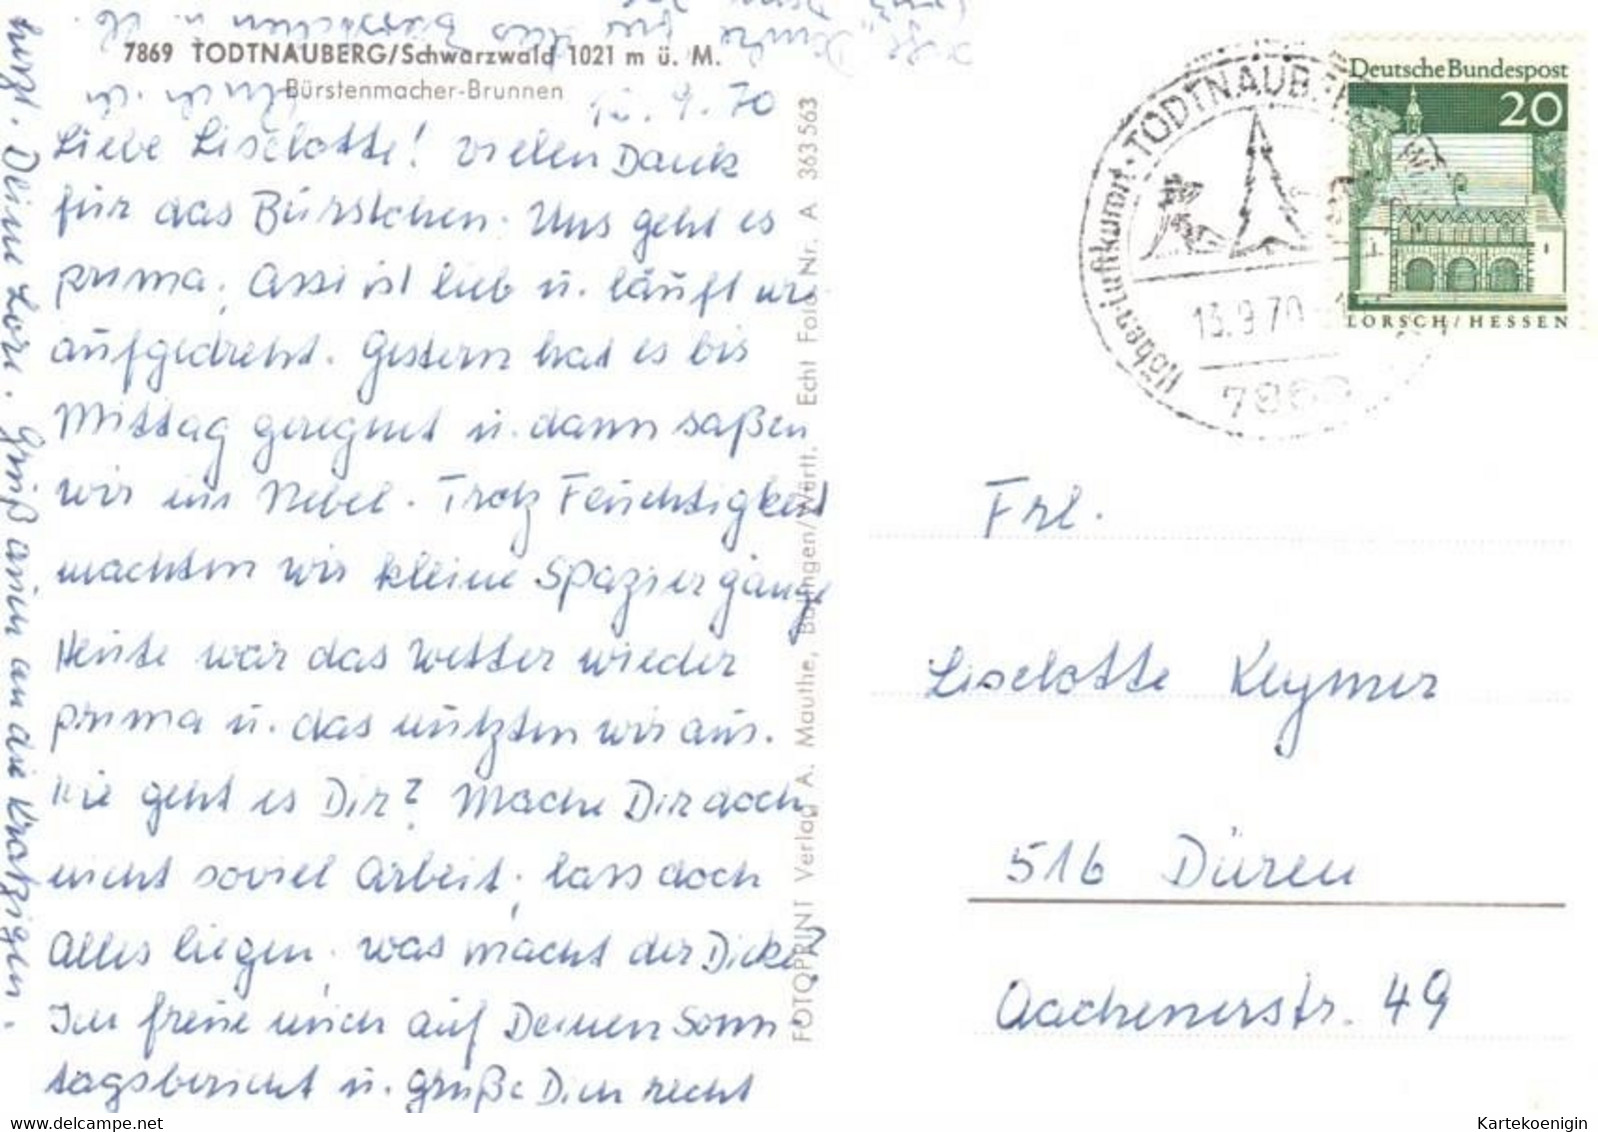 7869 TODTNAUBERG/Schwarzwald 1021 m ü. M.
Bürstenmacher-Brunnen
12. 9. 70
Liebe Liselotte! vielen Dank
für das Bürstchen. Uns geht es
prima, Assi ist lieb u. läuft wie
aufgedreht. Gestern hat es bis
Mittag geregnet u. dann saßen
wir im Nebel. Trotz Feuchtigkeit
machten wir kleine Spaziergänge
Heute war das Wetter wieder
prima u. das nützten wir aus.
Wie geht es Dir? Mache Dir doch
nicht soviel Arbeit, lass doch
Alles liegen. was macht der Dicke?
Ich freue mich auf Deinen Sonn-
tagsbericht u. grüße Dich recht
herzl. Deine Lore. Gruß auch an die Kratzigen.
FOTOPRINT Verlag A. Mauthe, Balingen/Württ. Echt Foto Nr. A 363 563
Höhenluftkurort · TODTNAUB
13.9.70
7869
Deutsche Bundespost
20
LORSCH/HESSEN
Frl.
Liselotte Keymer
516 Düren
Aachenerstr. 49
www.delcampe.net
Kartekoenigin